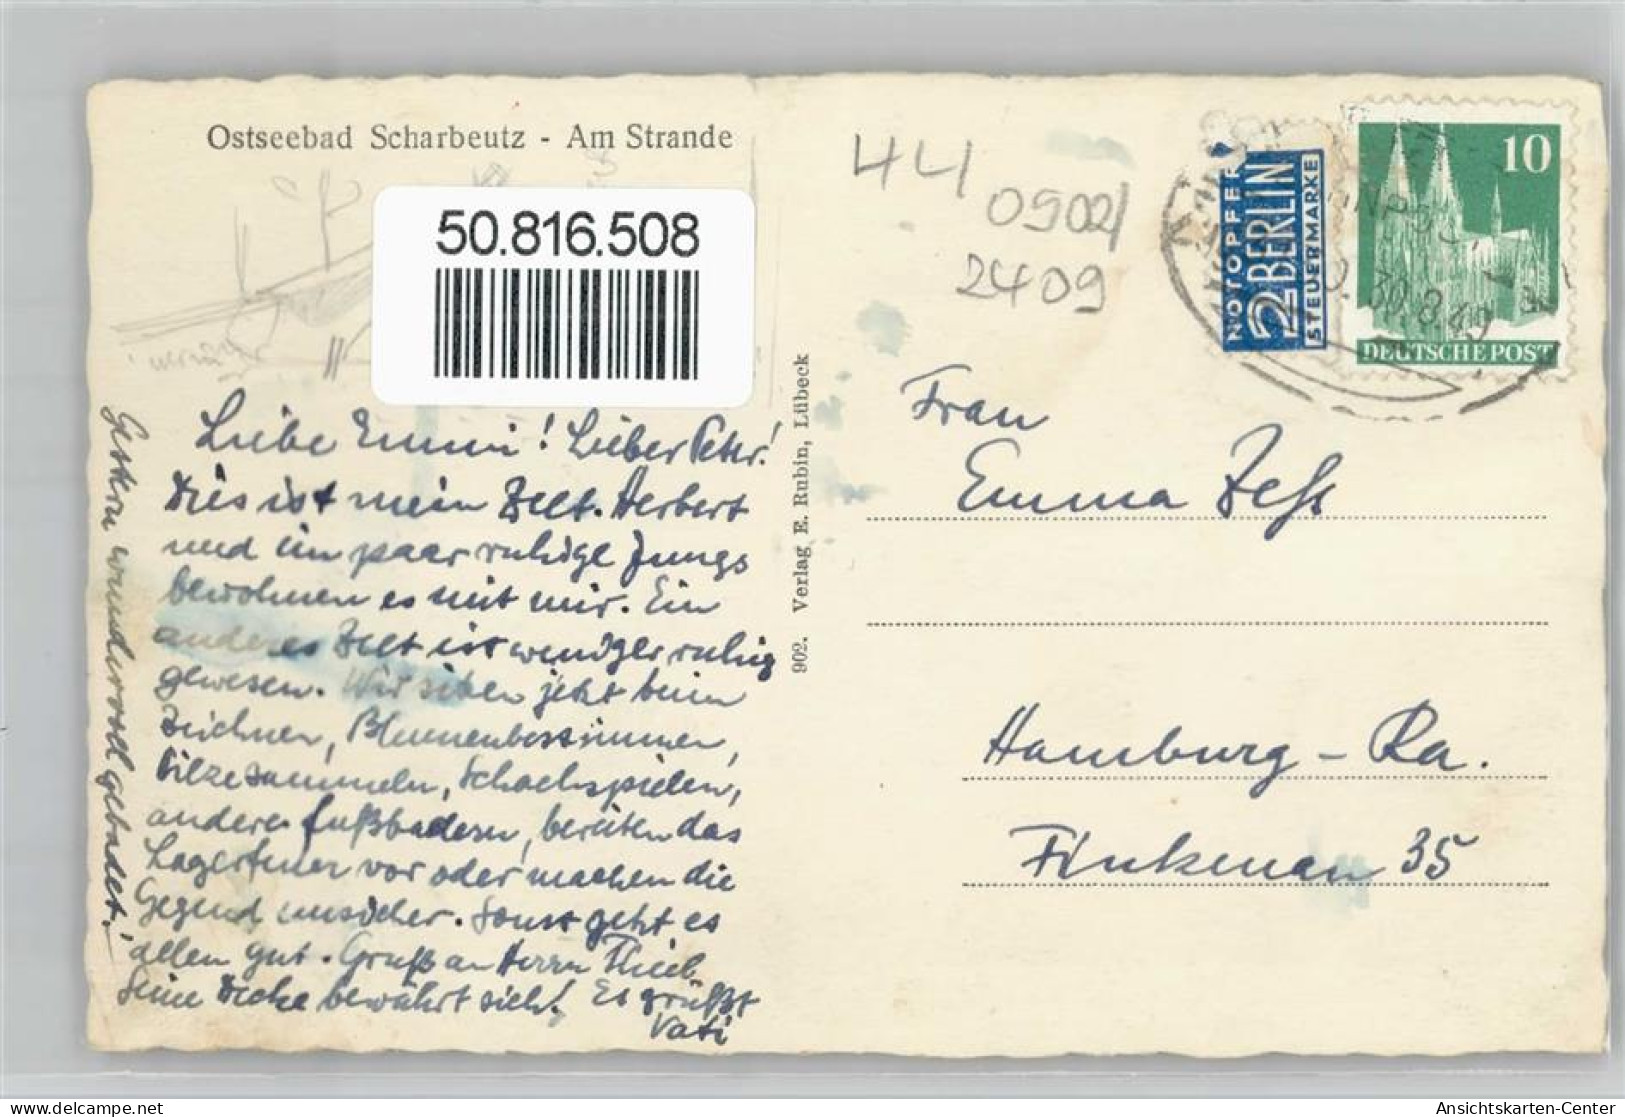 Ostseebad Scharbeutz - Am Strande
50.816.508
Liebe Emmi! Lieber Peter!
Dies ist mein Zelt. Herbert
und ein paar ruhige Jungs
bewohnen es mit mir. Ein
anderes Zelt ist weniger ruhig
gewesen. Wir sitzen jetzt beim
Zeichnen, Blumenbestimmen,
Pilzesammeln, Schachspielen,
andere fußbadern, bereiten das
Lagerfeuer vor oder machen die
Gegend unsicher. Sonst geht es
allen gut. Gruß an Herrn Thieb
Seine Decke bewährt sich! Es grüßt
Vati
Gestern wundervoll gebadet!
902. Verlag E. Rubin, Lübeck
44
0902/
2409
NOTOPFER
2 BERLIN
STEUERMARKE
10
DEUTSCHE POST
30.8.49
Frau
Emma Jess
Hamburg - Ra.
Finkenau 35
Ansichtskarten-Center